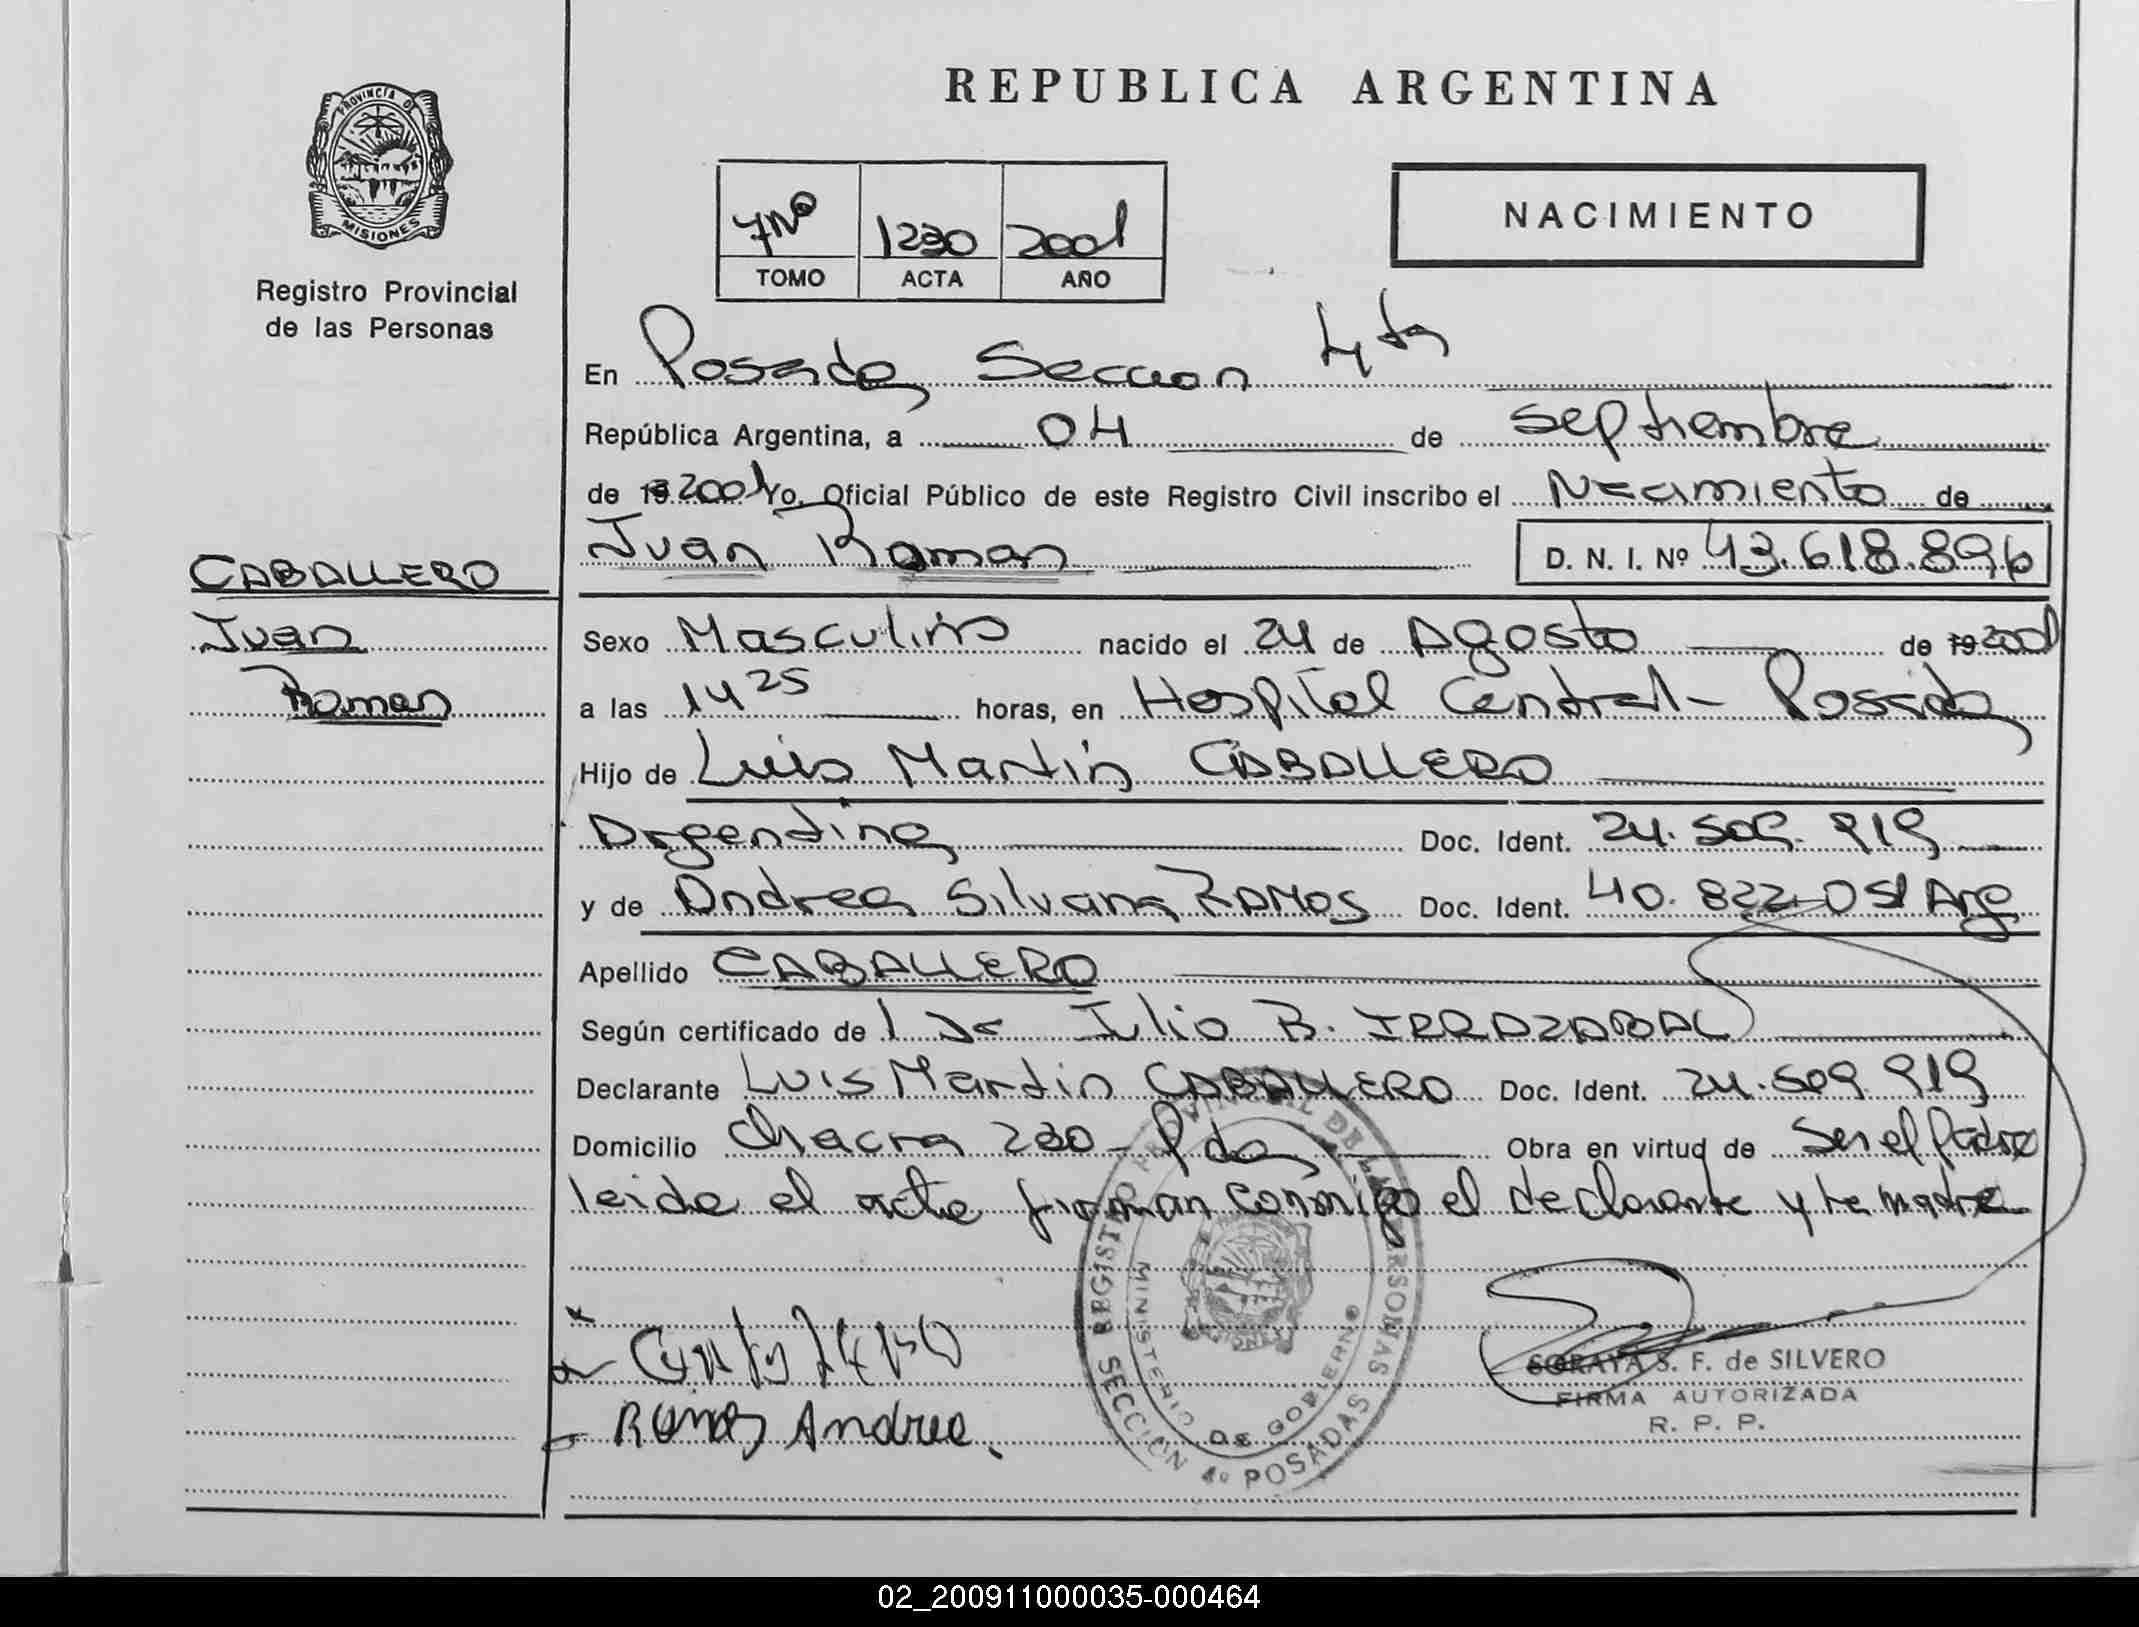 REPUBLICA ARGENTINA
PROVINCIA DE
MISIONES
Registro Provincial
de las Personas
7Nº 1230 2001
TOMO ACTA AÑO
NACIMIENTO
En Posadas Seccion 4ta
República Argentina, a 04 de septiembre
de 19 2001 Yo, Oficial Público de este Registro Civil inscribo el Nacimiento de
Juan Ramon D. N. I. Nº 43.618.896
CABALLERO
Juan
Ramon
Sexo Masculino nacido el 24 de Agosto de 19 2001
a las 14 25 horas, en Hospital Central - Posadas
Hijo de Luis Martin CABALLERO
Argentino Doc. Ident. 24.509.919
y de Andrea Silvana RAMOS Doc. Ident. 40.822.051 Arg
Apellido CABALLERO
Según certificado de Dr Julio B. IRRAZABAL
Declarante Luis Martin CABALLERO Doc. Ident. 24.509.919
Domicilio Chacra 230 - Pdas Obra en virtud de Ser el Padre
leida el acta firman conmigo el declarante y la madre
Ramos Andrea.
REGISTRO PROVINCIAL DE LAS PERSONAS
MINISTERIO DE GOBIERNO
SECCION 4º POSADAS
SORAYA S. F. de SILVERO
FIRMA AUTORIZADA
R. P. P.
02_200911000035-000464